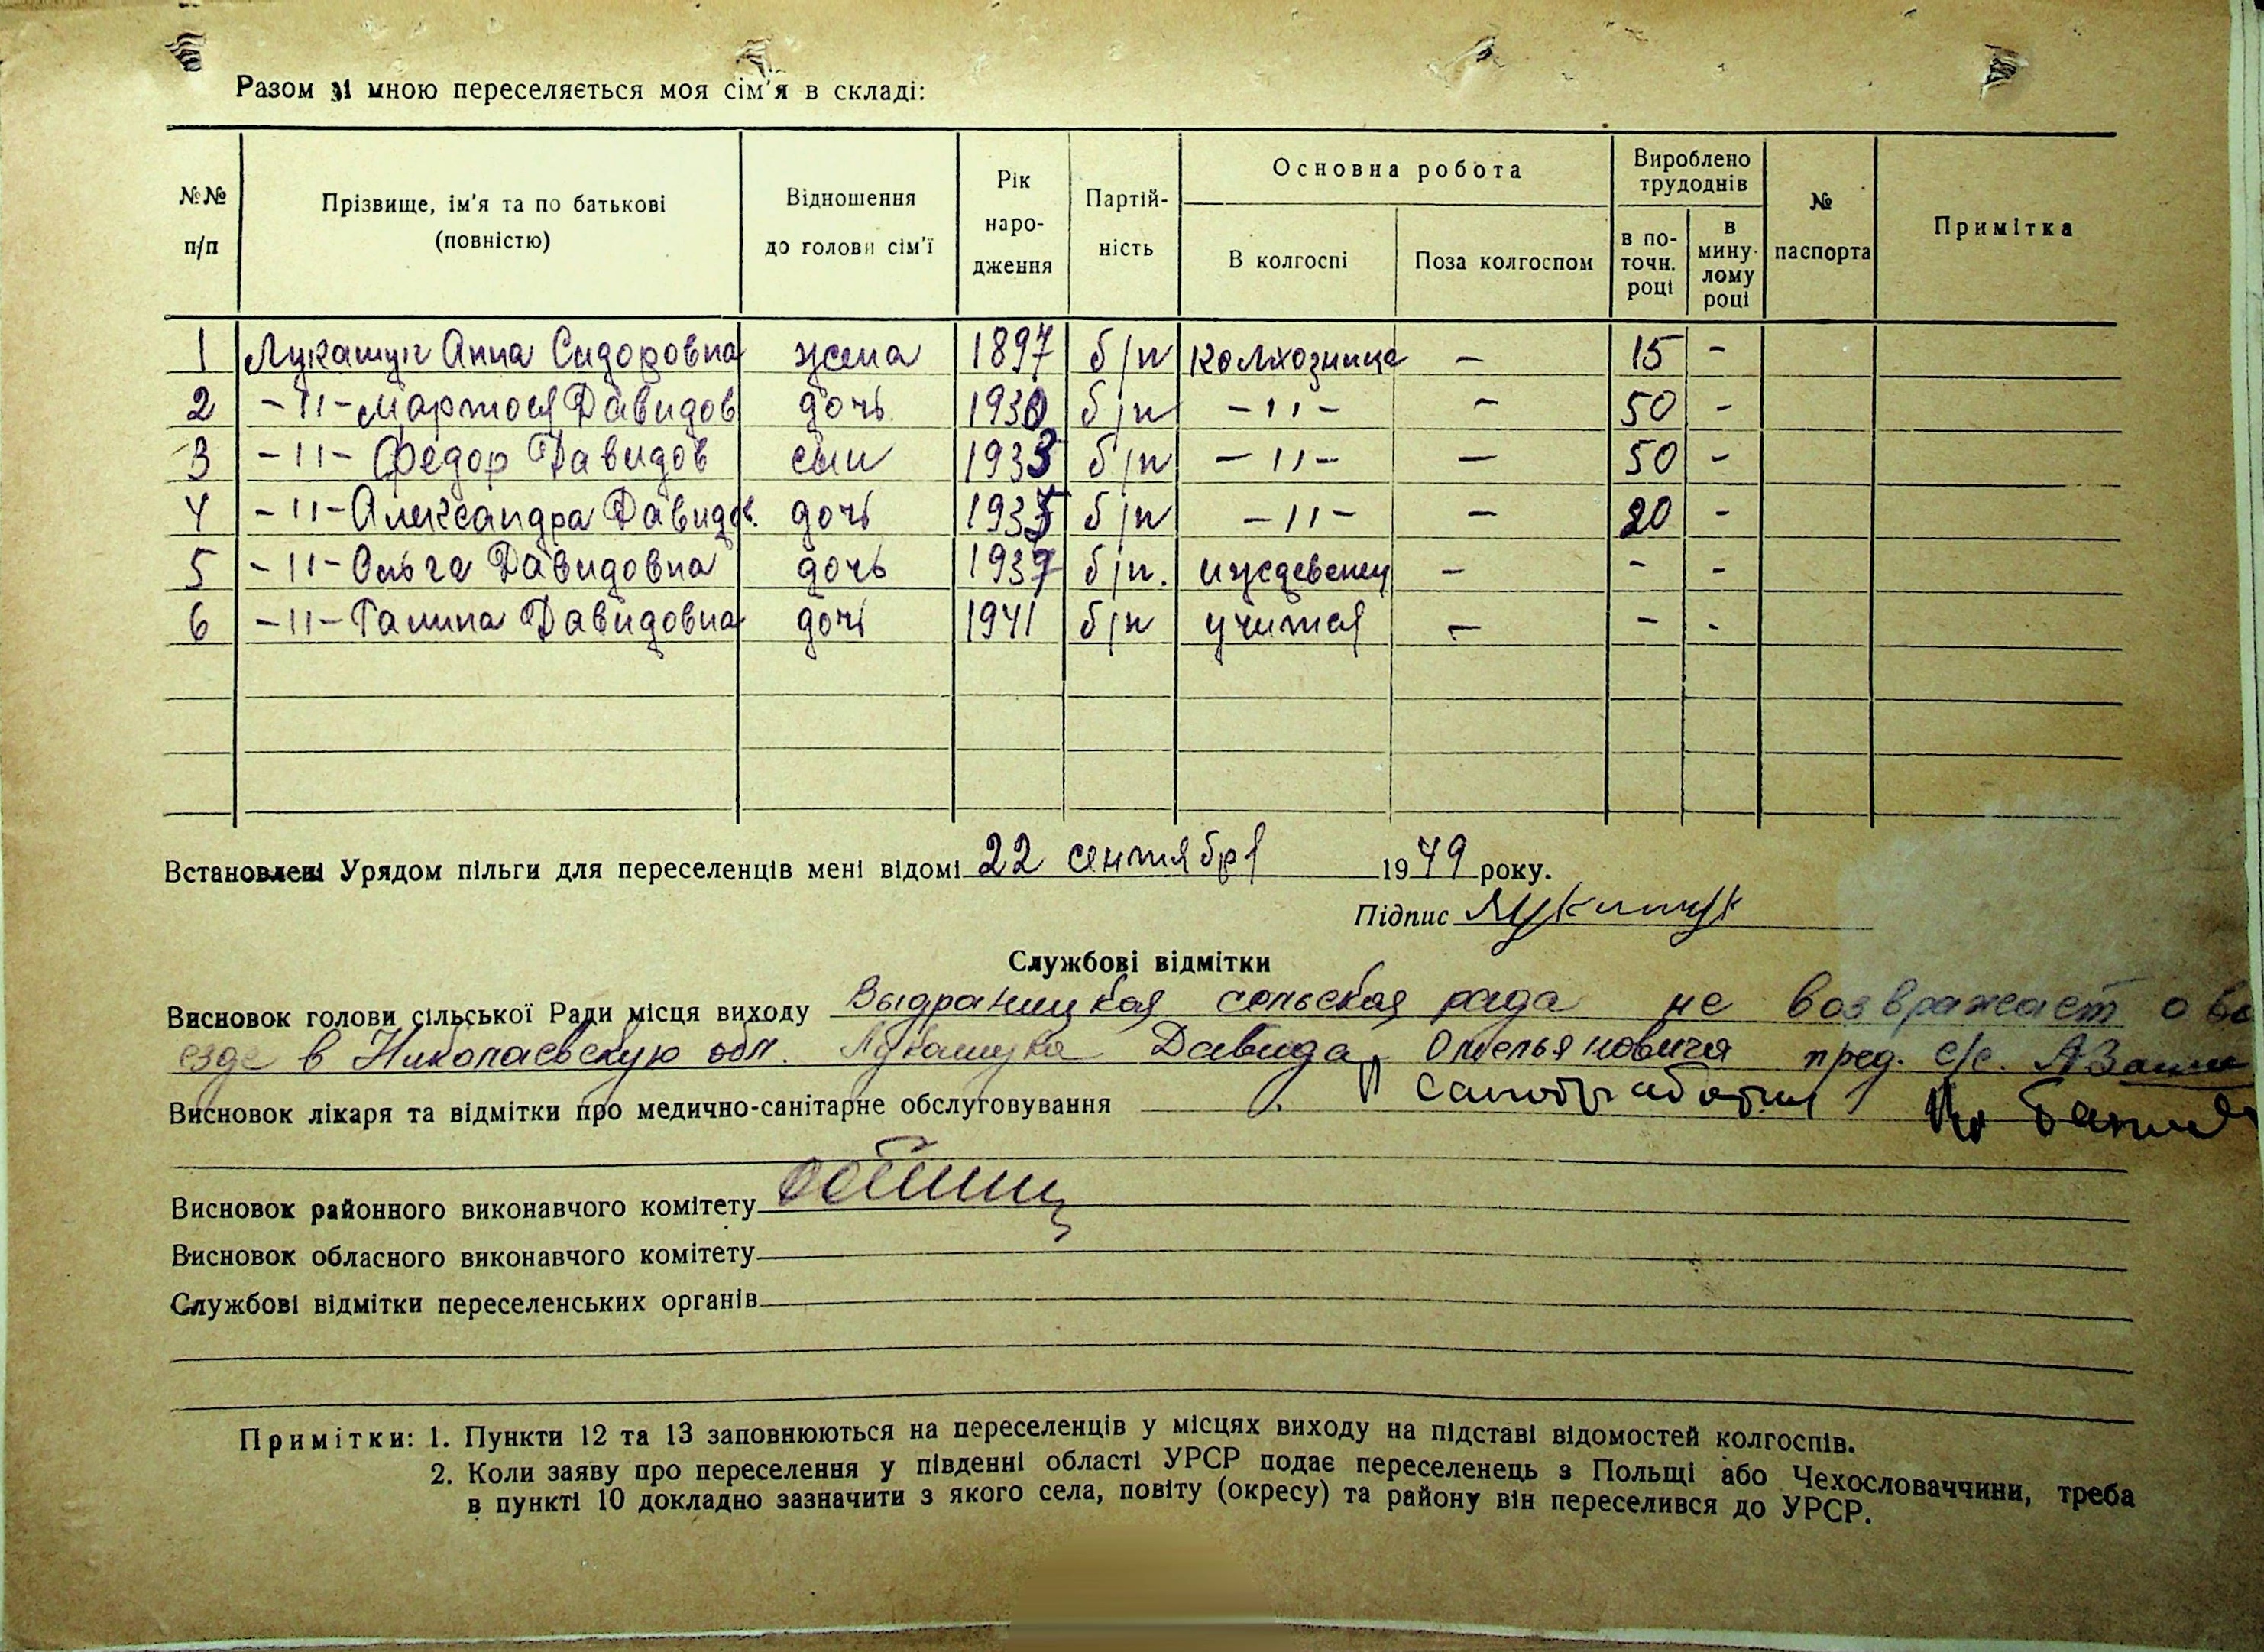 Разом зі мною переселяється моя сім'я в складі:
№№ п/п | Прізвище, ім'я та по батькові (повністю) | Відношення до голови сім'ї | Рік народження | Партій-ність | Основна робота | Вироблено трудоднів | № паспорта | Примітка
В колгоспі | Поза колгоспом | в по-точн. році | в мину-лому році
1 Лукашук Анна Сидоровна жена 1897 б/п колхозница – 15 –
2 –11– Давидов дочь 1930 б/п –11– – 50 –
3 –11– Федор Давидов сын 1933 б/п –11– – 50 –
4 –11– Александра Давидов. дочь б/п –11– – 20 –
5 –11– Ольга Давидовна дочь б/п. иждевенец – – –
6 –11– Галина Давидовна дочь 1941 б/п учится – – -
Встановлені Урядом пільги для переселенців мені відомі 22 сентября 1949 року.
Підпис Лукашук
Службові відмітки
Висновок голови сільської Ради місця виходу Выдраницкая сельская рада не возвражает о вы
езде в Николаевскую обл. Лукашука Давида Омельяновича пред. с/с.
Висновок лікаря та відмітки про медично-санітарне обслуговування
Висновок районного виконавчого комітету
Висновок обласного виконавчого комітету
Службові відмітки переселенських органів
Примітки: 1. Пункти 12 та 13 заповнюються на переселенців у місцях виходу на підставі відомостей колгоспів.
2. Коли заяву про переселення у південні області УРСР подає переселенець з Польщі або Чехословаччини, треба
в пункті 10 докладно зазначити з якого села, повіту (окресу) та району він переселився до УРСР.